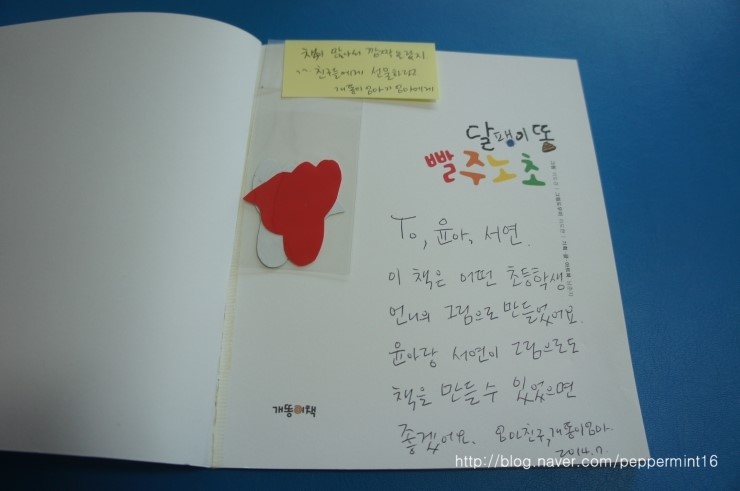 친구들에게 선물하려
개똥이엄마가
달팽이똥
빨주노초
To, 윤아, 서연.
이 책은 어떤 초등학생
언니의 그림으로 만들었어요.
윤아랑 서연이 그림으로도
책을 만들 수 있었으면
좋겠어요. 엄마친구, 개똥이엄마.
2014.7.
개똥이책
http://blog.naver.com/peppermint16